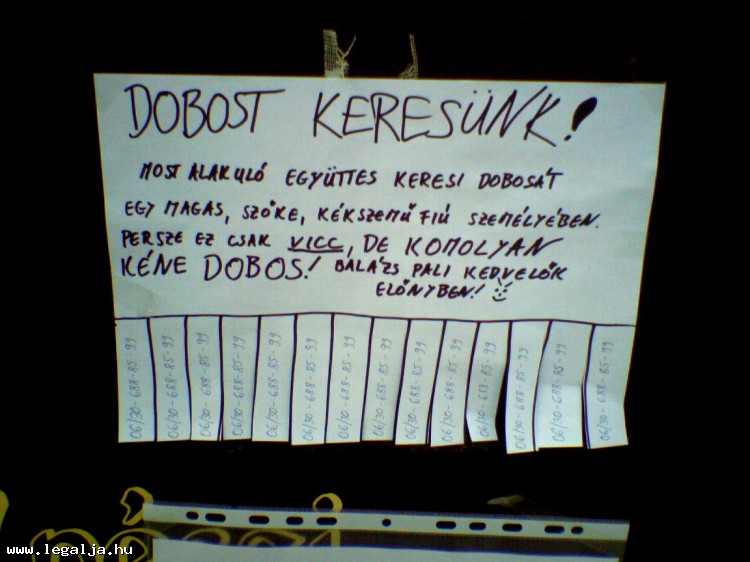 DOBOST KERESÜNK!
MOST ALAKULÓ EGYÜTTES KERESI DOBOSÁT
EGY MAGAS, SZŐKE, KÉKSZEMŰ FIÚ SZEMÉLYÉBEN.
PERSZE EZ CSAK VICC, DE KOMOLYAN
KÉNE DOBOS! BALÁZS PALI KEDVELŐK
ELŐNYBEN!
06/30-688-85-99
06/30-688-85-99
06/30-688-85-99
06/30-688-85-99
06/30-688-85-99
06/30-688-85-99
06/30-688-85-99
06/30-688-85-99
06/30-688-85-99
06/30-688-85-99
06/30-688-85-99
06/30-688-85-99
06/30-688-85-99
06/30-688-85-99
www.legalja.hu